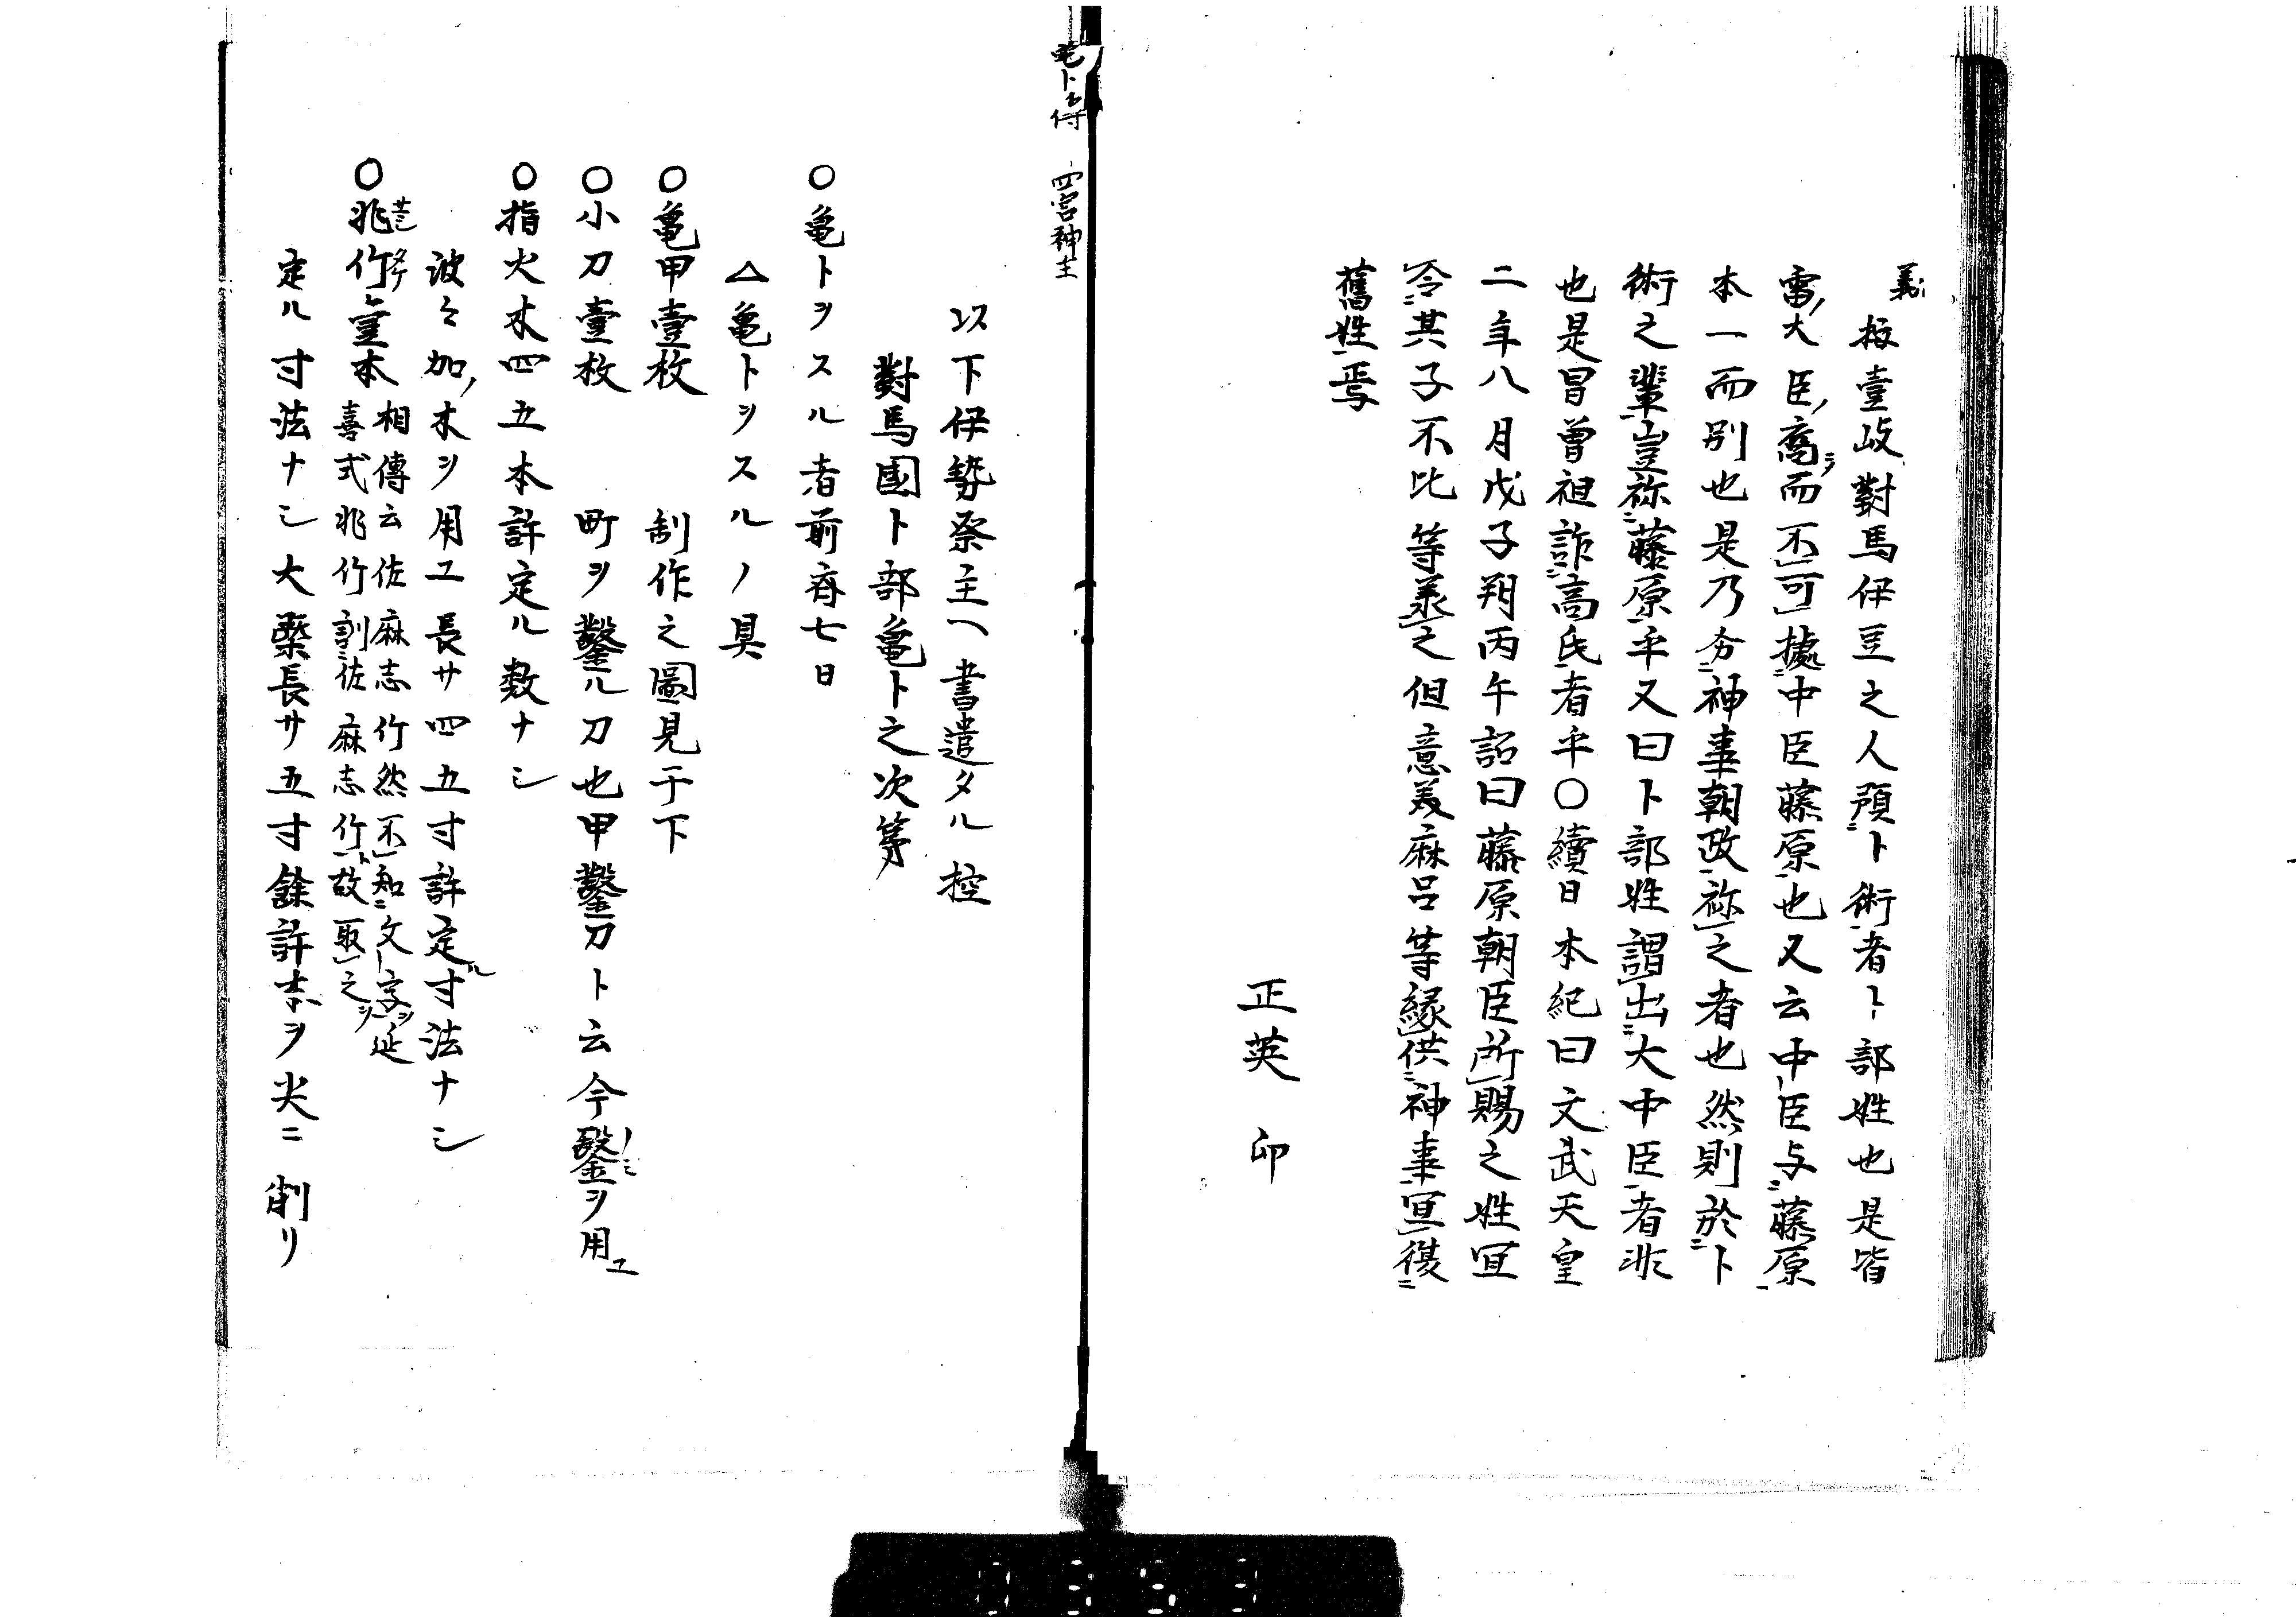 義
極壹岐對馬伊豆之人預ニ卜術一者卜部姓也是皆
雷大臣ノ裔ニシテ而不レ可レ據ニ中臣藤原一也又云中臣与ニ藤原一
本一而別也是乃分ニ神事朝政一祢レ之者也然則於ニ卜
術之輩一豈祢ニ藤原一乎又曰卜部姓謂レ出ニ大中臣一者非
也是冒曽祖詐ニ高氏一者乎〇續日本紀曰文武天皇
二年八月戊子朔丙午詔曰藤原朝臣所レ賜之姓冝
令ニ其子不比等兼レ之但意美麻呂等縁レ供ニ神事一冝レ復ニ
舊姓一焉
正英 印
亀卜傳 四宮神主
以下伊勢祭主ヘ書遣タル控
對馬國卜部亀卜之次等
〇亀卜ヲスル者前齋七日
△亀卜ヲスルノ具
〇亀甲壹枚 制作之圖見于下
〇小刀壹枚 町ヲ鑿ル刀也甲鑿刀ト云今鑿ノミヲ用ユ
〇指火木四五本許定ル数ナシ
波々加ノ木ヲ用ユ長サ四五寸許定ル寸法ナシ
〇兆竹サマシタケ壹本 相傳云佐麻志竹然不レ知ニ文字一ヲ延
喜式兆竹訓ニ佐麻志竹一ト故取レ之ヲ
定ル寸法ナシ大槩長サ五寸餘許末ヲ尖ニ削リ